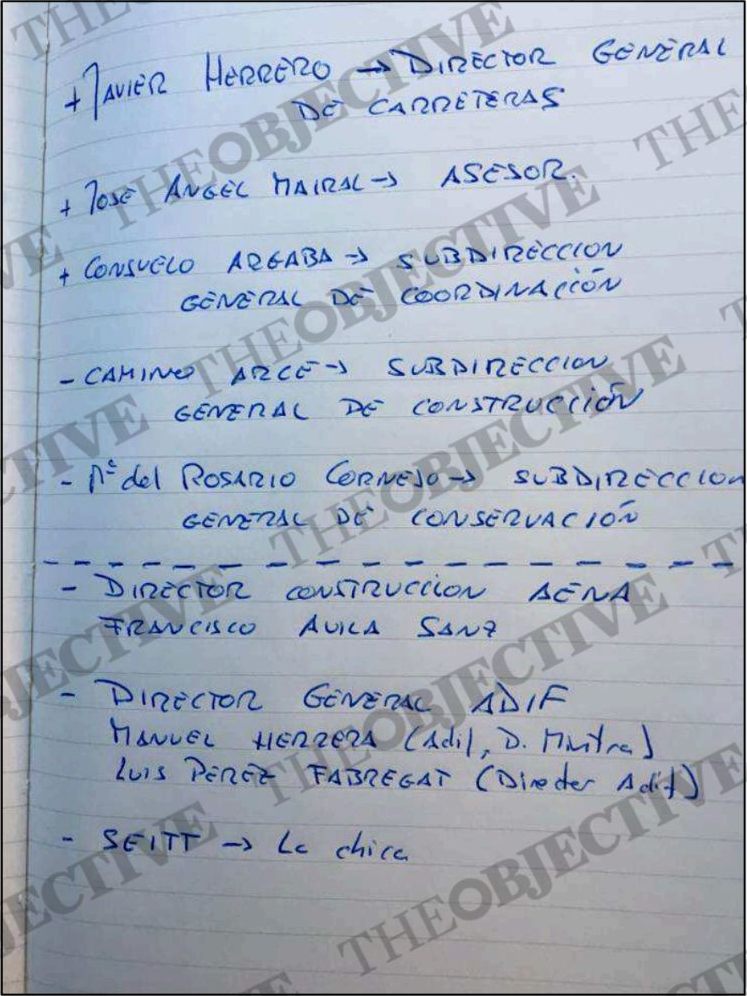 + JAVIER HERRERO → DIRECTOR GENERAL
DE CARRETERAS
+ JOSE ANGEL MAIRAL → ASESOR.
+ CONSUELO ARGABA → SUBDIRECCION
GENERAL DE COORDINACIÓN
- CAMINO ARCE → SUBDIRECCION
GENERAL DE CONSTRUCCIÓN
- Mª del ROSARIO CORNEJO → SUBDIRECCION
GENERAL DE CONSERVACIÓN
- DIRECTOR CONSTRUCCION AENA
FRANCISCO AVILA SANZ
- DIRECTOR GENERAL ADIF
MANUEL HERRERA (Adif, D.
LUIS PEREZ FABREGAT (Director Adif)
- SEITT → La chica
THEOBJECTIVE